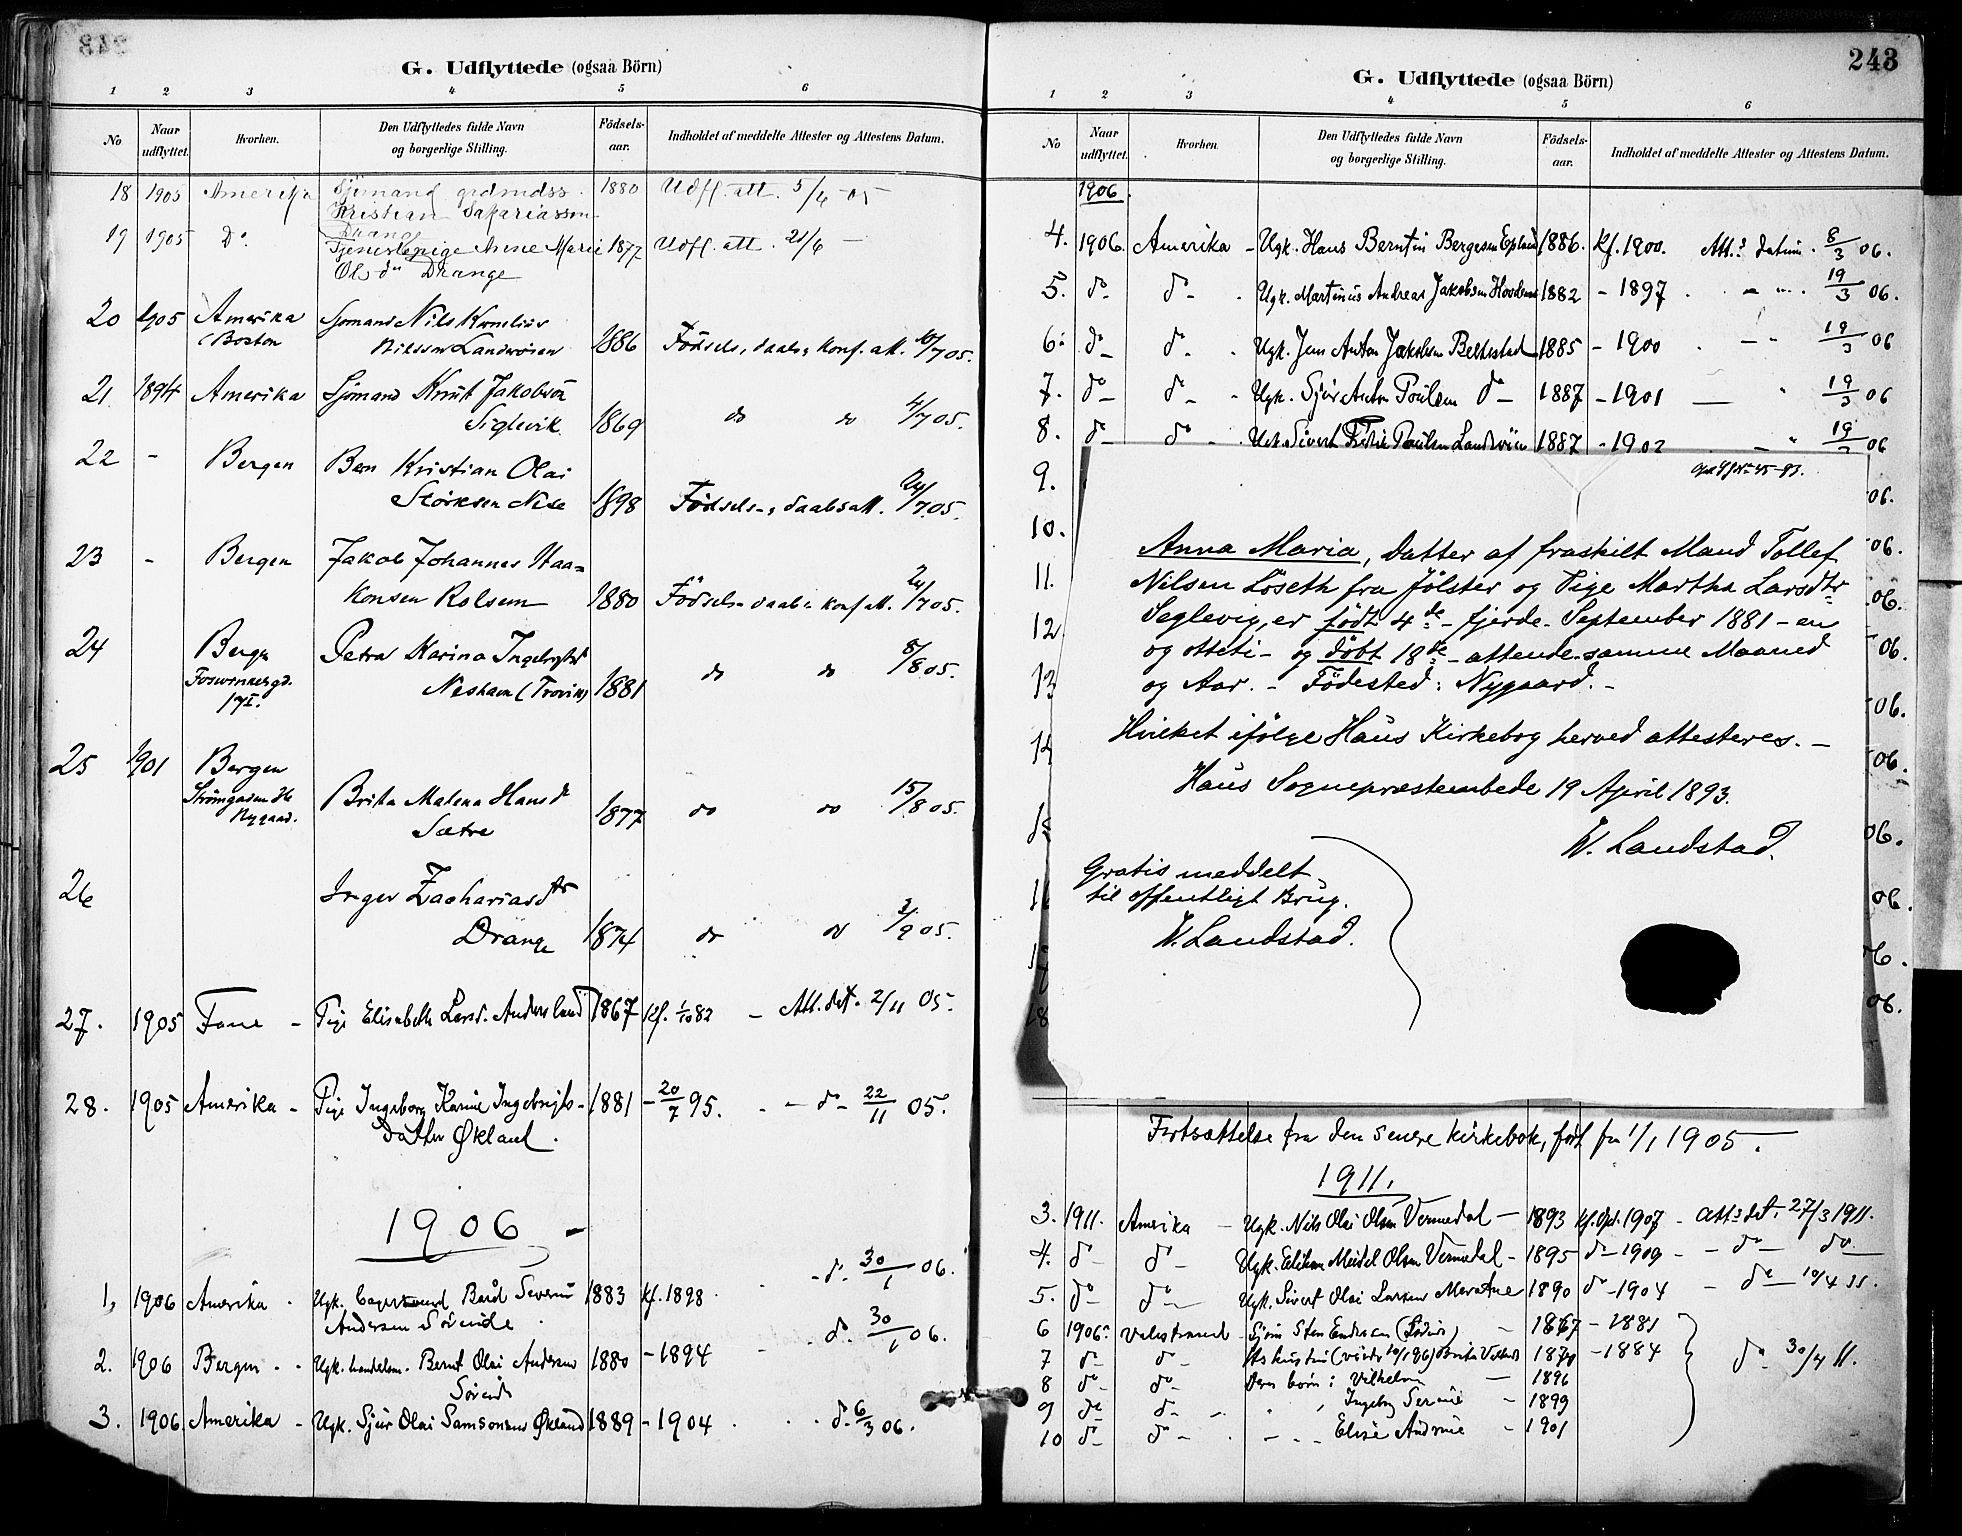 G. Udflyttede (ogsaa Börn)
1 2 3 4 5 6
No Naar udflyttet. Hvorhen. Den Udflyttedes fulde Navn og borgerlige Stilling. Födsels-aar. Indholdet af meddelte Attester og Attestens Datum.
18 1905 Amerika Sjømand 1880 Udfl. att. 5/6 - 05
Kristian Sakariassen
Drange
19 1905 Do. Tjenestepige Anne Marie 1877 Udfl. att. 21/6 -
Ols dr Drange
20 1905 Amerika Sjømand Nils Kornelius
(Boston Nilssen Landrøsen 1886 Fødsels, daabs, konf. att. 10/7 05.
21 1894 Amerika Sjømand Knut Jakobsen
Siglevik 1869 do do 4/7 05.
22 - Bergen Barn Kristian Olai
Størksen Nese 1898 Fødsels- , daabsatt. 24/7 05.
23 - Bergen Jakob Johannes Haa=
Konsen Rolsem 1880 Fødsels- daabs konf att. 24/7 05.
24 Bergen Petra Karina Ingebrigtsd
Fosswinkergd. 17I. Nesham (Trovik) 1881 do do 8/8 05.
25 1901 Bergen
Strømgaden
Nygaard. Brita Malena Hansd 1877 do do 15/8 05.
Sætre
26 Inger Zachariasdtr
Drange 1874 do do 2/9 05.
27. 1905 Fane - Pige Elisabeth Larsd. Andersland 1867 Kf. 1/10 82 - Att. dat. 2/11 05.
28. 1905 Amerika - Pige Ingeborg Karine Ingebrigts- 1881 - 20/7 95. - do - 22/11 05.
datter Økland.
1906 -
1, 1906 Amerika. Ugk. Baard Severin 1883 Kf. 1898 - do. 30/1 06.
Andersen Sørvide
2. 1906 Bergen - Ugk. handelsm. Bernt Olai Andersen 1880 - 1894 - do. 30/1 06.
Sørvide
3. 1906 Amerika - Ugk. Sjur Olai Samsonsen Økland 1889 - 1904 do. 6/3 06.
243
G. Udflyttede (ogsaa Börn)
1 2 3 4 5 6
No Naar udflyttet. Hvorhen. Den Udflyttedes fulde Navn og borgerlige Stilling. Födsels-aar. Indholdet af meddelte Attester og Attestens Datum.
1906.
4. 1906. Amerika - Ugk. Hans Berntin Bergesen Epland 1886. Kf. 1900. Att.s datum. 8/3 06.
5. do - do - Ugk. Martinus Andreas Jakobsen Hosdens 1882 - 1897 - " 19/3 06.
6. do - do - Ugk. Jens Anton Jakobsen Beltestad 1885 - 1900 - - 19/3 06
7. do - do - Ugk. Sjur Anton Poulsen do - 1887 - 1901 - " 19/3 06
8. do - do - Ugk. Sivert Fredrik Poulsen Landsvik 1887 - 1902 - " 19/3 06
9. 06.
10. 06.
11. 06.
12 06.
13 06.
14 06.
15 06.
16 06.
17 06.
18 06.
Anna Maria, datter af fraskilt Mand Tollef
Nilsen Løseth fra Jølster og Pige Martha Larsdtr
Seglevig, er født 4de - fjerde - September 1881 - en
og otteti - og döbt 18de - attende - samme Maaned
og Aar. - Fødested: Nygaard. -
Hvilket ifølge Haus Kirkebog herved attesteres. -
Haus Sognepræstembede 19 April 1893.
W. Landstad.
Gratis meddelt
til offentligt Brug.
W. Landstad.
Fortsættelse fra den senere kirkebok, ført fra 1/1 1905.
1911.
3. 1911. Amerika - Ugk. Nils Olai Olsen Vermedal - 1893 Kf. 1907 - att.s dat. 27/3 1911.
4. do - do - Ugk. Olsen Vermedal - 1895 do - 1909 - - do - do
5. do - do - Ugk. Sivert Olai Larsen 1890 do - 1904 - do - 10/4 11.
6 1906. Valestrand - Sten Endresen 1867 - 1881
7 do - do - Hustru 1870 - 1884 do 30/4 11.
8 do - do - Deres børn: Vilhelm - 1896
9 do - do - Ingeborg Serine - 1899
10 do - do - Elise Andrine - 1901